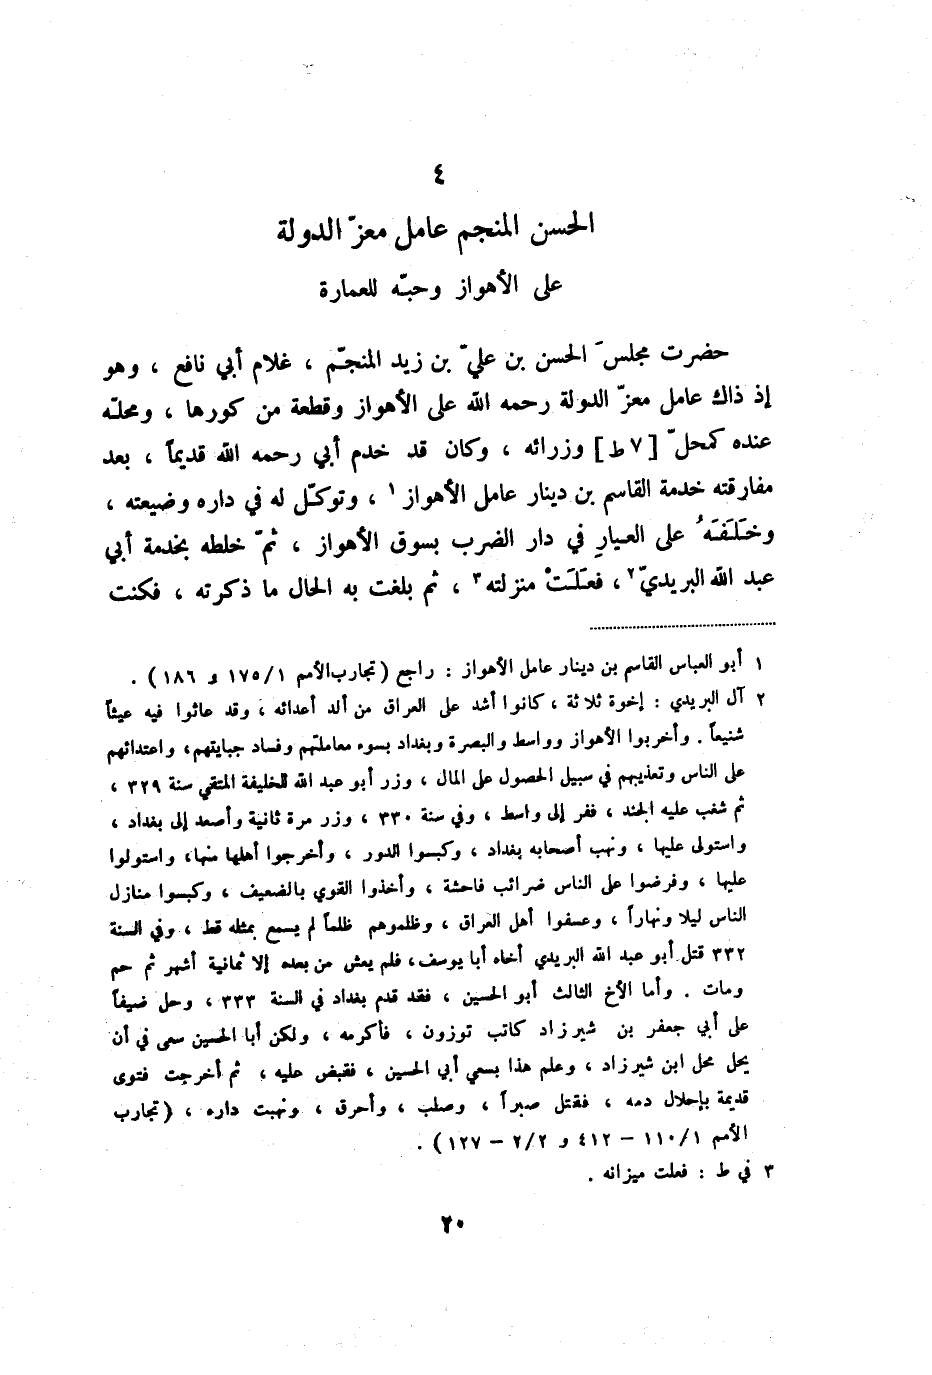 ٤
الحسن المنجم عامل معزّ الدولة
على الأهواز وحبّه للعمارة
حضرت مجلسَ الحسن بن عليّ بن زيد المنجّم ، غلام أبي نافع ، وهو
إذ ذاك عامل معزّ الدولة رحمه الله على الأهواز وقطعة من كورها ، ومحلّه
عنده كمحلّ [ ٧ ط ] وزرائه ، وكان قد خدم أبي رحمه الله قديماً ، بعد
مفارقته خدمة القاسم بن دينار عامل الأهواز ١ ، وتوكّل له في داره وضيعته ،
وخَلَفَهُ على العيارِ في دار الضرب بسوق الأهواز ، ثمّ خلطه بخدمة أبي
عبد الله البريديّ ٢ ، فعَلَتْ منزلته ٣ ، ثم بلغت به الحال ما ذكرته ، فكنت
١ أبو العباس القاسم بن دينار عامل الأهواز : راجع ( تجارب الأمم ١/ ١٧٥ و ١٨٦ ) .
٢ آل البريدي : إخوة ثلاثة ، كانوا أشد على العراق من ألد أعدائه ، وقد عاثوا فيه عيثاً
شنيعاً . وأخربوا الأهواز وواسط والبصرة وبغداد بسوء معاملتهم وفساد جبايتهم، واعتدائهم
على الناس وتعذيبهم في سبيل الحصول على المال ، وزر أبو عبد الله للخليفة المتقي سنة ٣٢٩ ،
ثم شغب عليه الجند ، ففر إلى واسط ، وفي سنة ٣٣٠ ، وزر مرة ثانية وأصعد إلى بغداد ،
واستولى عليها ، ونهب أصحابه بغداد ، وكبسوا الدور ، وأخرجوا أهلها منها، واستولوا
عليها ، وفرضوا على الناس ضرائب فاحشة ، وأخذوا القوي بالضعيف ، وكبسوا منازل
الناس ليلا ونهاراً ، وعسفوا أهل العراق ، وظلموهم ظلماً لم يسمع بمثله قط ، وفي السنة
٣٣٢ قتل أبو عبد الله البريدي أخاه أبا يوسف، فلم يعش من بعده إلا ثمانية أشهر ثم حم
ومات . وأما الأخ الثالث أبو الحسين ، فقد قدم بغداد في السنة ٣٣٣ ، وحل ضيفاً
على أبي جعفر بن شيرزاد كاتب توزون ، فأكرمه ، ولكن أبا الحسين سعى في أن
يحل محل ابن شيرزاد ، وعلم هذا بسعي أبي الحسين ، فقبض عليه ، ثم أخرجت فتوى
قديمة بإحلال دمه ، فقتل صبراً ، وصلب ، وأحرق ، ونهبت داره ، ( تجارب
الأمم ١/ ١١٠ – ٤١٢ و ٢/ ٢ – ١٢٧ ) .
٣ في ط : فعلت ميزانه .
٢٠